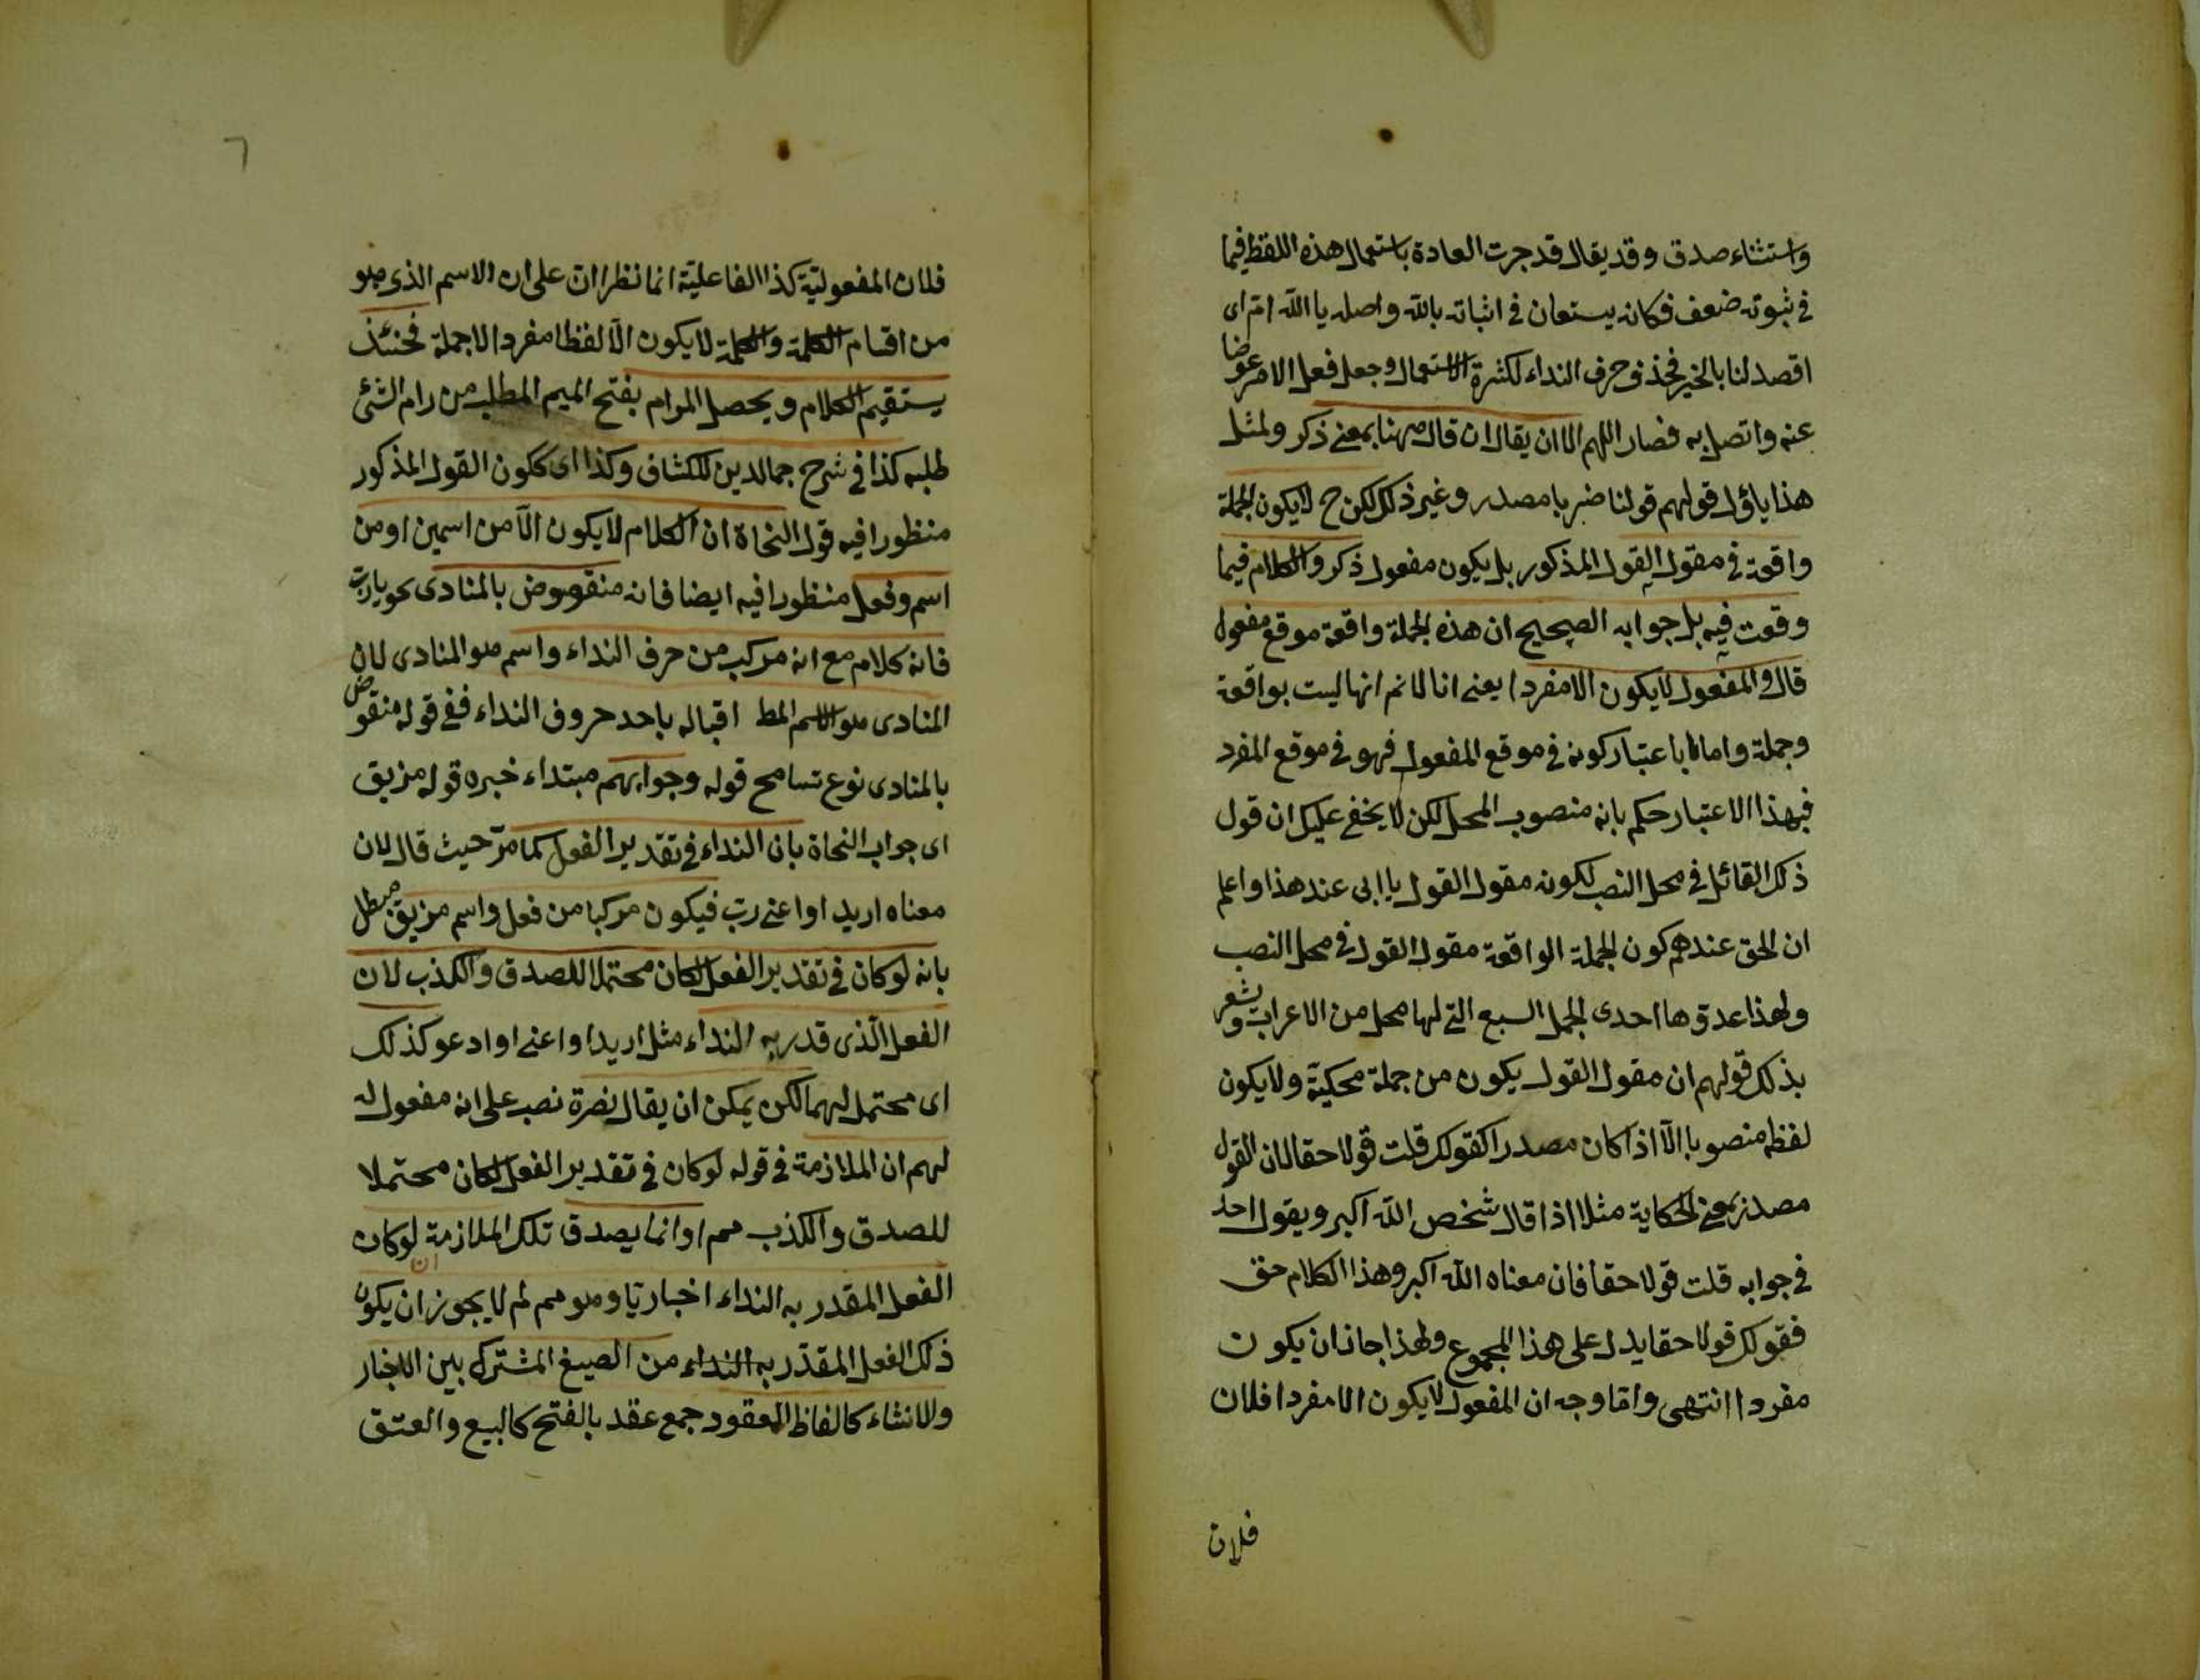 واستثناء صدق وقد يقال قد جرت العادة باستعمال هذه اللفظ فيما
فى ثبوته ضعف فكانه يستعان فى اثباته بالله واصله يا الله ام اى
اقصد لنا بالخير فحذف حرف النداء لكثرة الاستعمال وجعل فعل الامر عوضا
عنه واتصل به فصار اللهم الا ان يقال ان قال ههنا بمعنى ذكر ولمثل
هذا ياؤل قولهم قولنا ضربا مصدر وغير ذلك لكن ح لا يكون الجملة
واقعة فى مقول القول المذكور بل يكون مفعول ذكر والكلام فيما
وقعت فيه بل جوابه الصحيح ان هذه الجملة واقعة موقع مفعول
قال والمفعول لا يكون الا مفردا يعنى انا لا نم انها ليست بواقعة
وجملة واما باعتبار كونه فى موقع المفعول فهو فى موقع المفرد
فبهذا الاعتبار حكم بانه منصوب المحل لكن لا يخفى عليك ان قول
ذلك القائل فى محل النصب لكونه مقول القول يا ابى عند هذا واعلم
ان الحق عندهم كون الجملة الواقعة مقول القول فى محل النصب
ولهذا عدوها احدى الجمل السبع التى لها محل من الاعراب ويشعر
بذلك قولهم ان مقول القول يكون من جملة محكية ولا يكون
لفظه منصوبا الا اذا كان مصدرا كقولك قلت قولا حقا لان القول
مصدر بمعنى الحكاية مثلا اذا قال شخص الله اكبر ويقول احد
فى جوابه قلت قولا حقا فان معناه الله اكبر وهذا الكلام حق
فقولك قولا حقا يدل على هذا المجموع ولهذا جاز ان يكون
مفردا انتهى واما وجه ان المفعول لا يكون الا مفردا فلان
فلان
٦
فلان المفعولية كذا الفاعلية انما نظرا ان على ان الاسم الذى هو
من اقسام الكلمة والكلمة لا يكون الا لفظا مفردا لا جملة فحنئذ
يستقيم الكلام ويحصل المرام بفتح الميم المطلب من رام الشئ
طلبه كذا فى شرح جمالدين للكشاف وكذا اى ككون القول المذكور
منظورا فيه قول النحاة ان الكلام لا يكون الا من اسمين او من
اسم وفعل منظورا فيه ايضا فانه منقوض بالمنادى نحو يا رب
فانه كلام مع انه مركب من حرف النداء واسم هو المنادى لان
المنادى هو الاسم المط اقباله باحد حروف النداء ففى قوله منقوض
بالمنادى نوع تسامح قوله وجوابهم مبتداء خبره قوله مزيق
اى جواب النحاة بان النداء فى تقدير الفعل كما مر حيث قال لان
معناه اريد او اعنى رب فيكون مركبا من فعل واسم مزيق مبطل
بانه لو كان فى تقدير الفعل لكان محتملا للصدق والكذب لان
الفعل الذى قدر به النداء مثل اريد او اعنى او ادعو كذلك
اى محتمل لهما لكن يمكن ان يقال نصرة نصب على انه مفعول له
لهم ان الملازمة فى قوله لو كان فى تقدير الفعل لكان محتملا
للصدق والكذب مم اوانما يصدق تلك الملازمة ان لو كان
الفعل المقدر به النداء اخباريا وهو مم لم لا يجوز ان يكون
ذلك الفعل المقدر به النداء من الصيغ المشترك بين الاخبار
والانشاء كالفاظ العقود جمع عقد بالفتح كالبيع والعتق